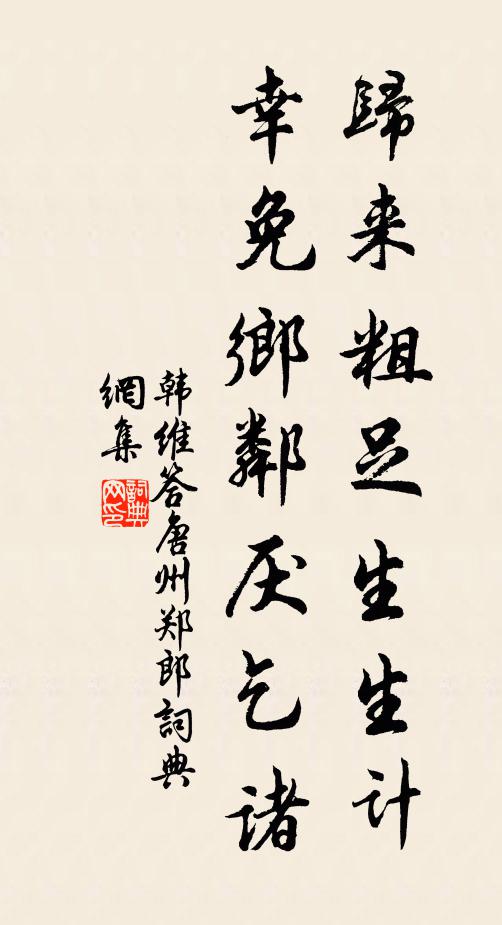 歸来粗足生生计
幸免鄉鄰厌乞诸
韩维答唐州郑郎詞典
網集
詞典網印